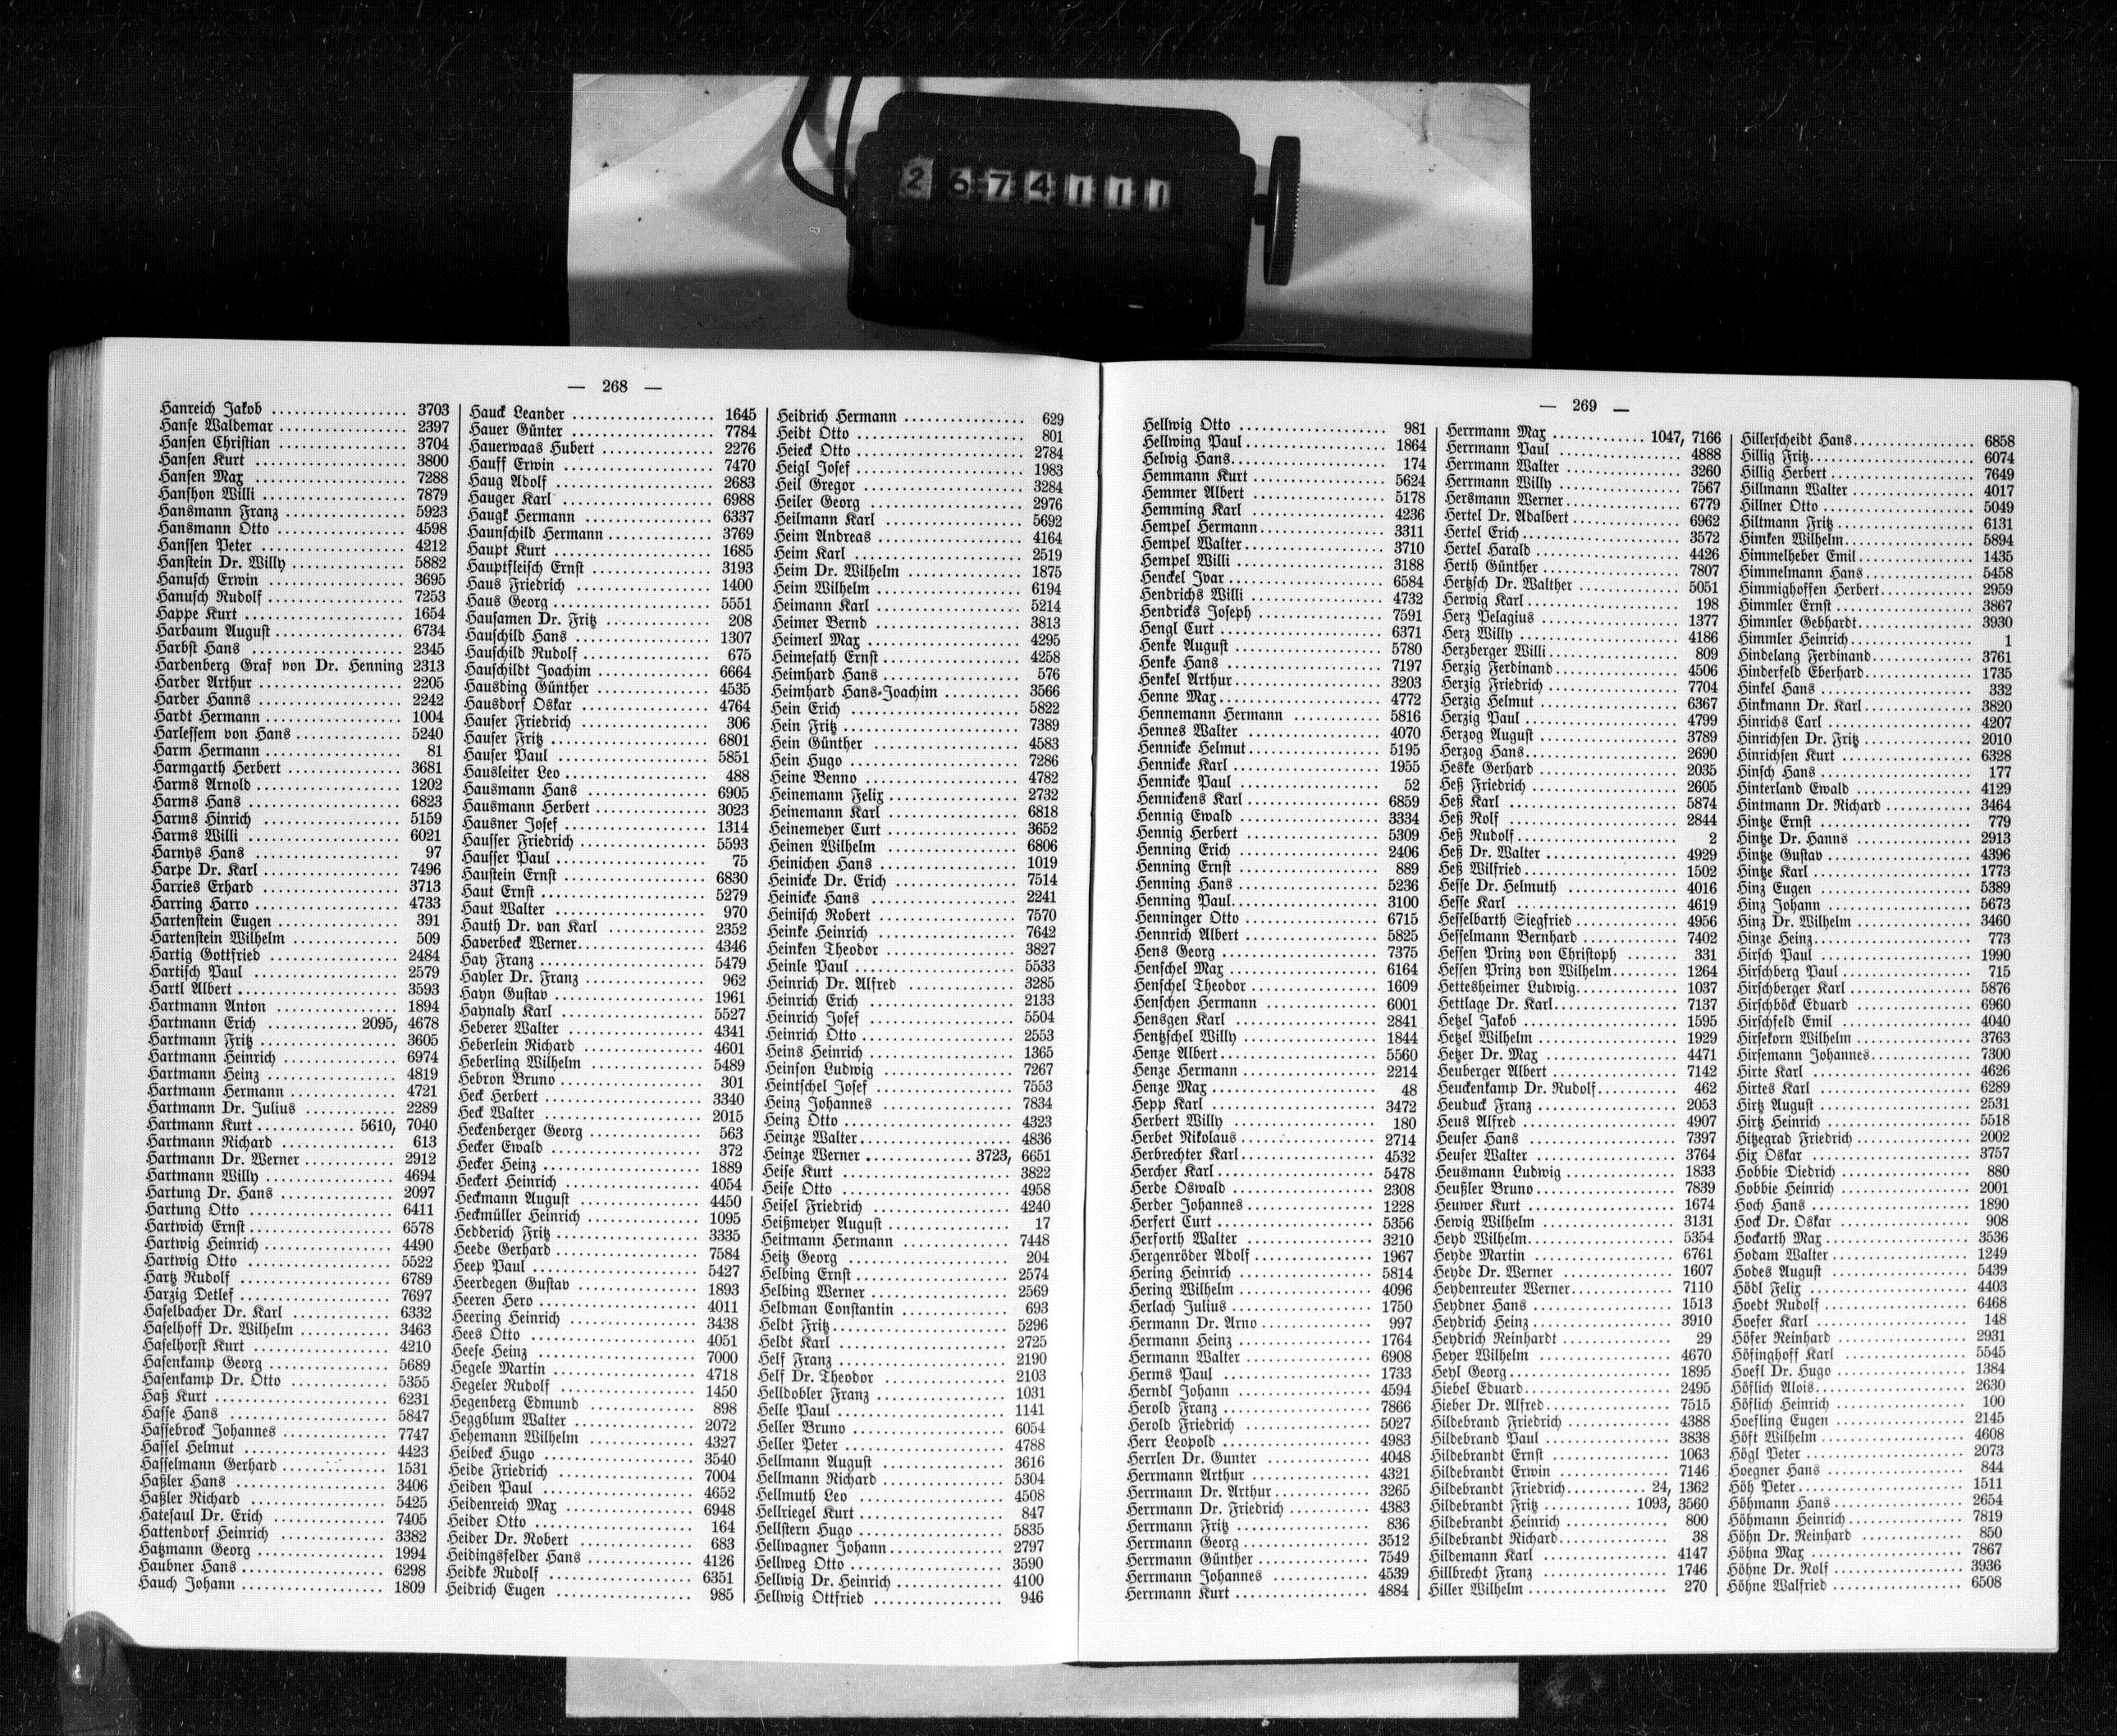 2674111
— 268 —
Hanreich Jakob .................. 3703
Hanse Waldemar .................. 2397
Hansen Christian .................. 3704
Hansen Kurt .................. 3800
Hansen Max .................. 7288
Hanshon Willi .................. 7879
Hansmann Franz .................. 5923
Hansmann Otto .................. 4598
Hanssen Peter .................. 4212
Hanstein Dr. Willy .................. 5882
Hanusch Erwin .................. 3695
Hanusch Rudolf .................. 7253
Happe Kurt .................. 1654
Harbaum August .................. 6734
Harbst Hans .................. 2345
Hardenberg Graf von Dr. Henning 2313
Harder Arthur .................. 2205
Harder Hanns .................. 2242
Hardt Hermann .................. 1004
Harlessem von Hans .................. 5240
Harm Hermann .................. 81
Harmgarth Herbert .................. 3681
Harms Arnold .................. 1202
Harms Hans .................. 6823
Harms Hinrich .................. 5159
Harms Willi .................. 6021
Harnys Hans .................. 97
Harpe Dr. Karl .................. 7496
Harries Erhard .................. 3713
Harring Harro .................. 4733
Hartenstein Eugen .................. 391
Hartenstein Wilhelm .................. 509
Hartig Gottfried .................. 2484
Hartisch Paul .................. 2579
Hartl Albert .................. 3593
Hartmann Anton .................. 1894
Hartmann Erich ............ 2095, 4678
Hartmann Fritz .................. 3605
Hartmann Heinrich .................. 6974
Hartmann Heinz .................. 4819
Hartmann Hermann .................. 4721
Hartmann Dr. Julius ............ 2289
Hartmann Kurt ............ 5610, 7040
Hartmann Richard .................. 613
Hartmann Dr. Werner ............ 2912
Hartmann Willy .................. 4694
Hartung Dr. Hans .................. 2097
Hartung Otto .................. 6411
Hartwich Ernst .................. 6578
Hartwig Heinrich .................. 4490
Hartwig Otto .................. 5522
Hartz Rudolf .................. 6789
Harzig Detlef .................. 7697
Haselbacher Dr. Karl ............ 6332
Haselhoff Dr. Wilhelm ............ 3463
Haselhorst Kurt .................. 4210
Hasenkamp Georg .................. 5689
Hasenkamp Dr. Otto ............ 5355
Haß Kurt .................. 6231
Hasse Hans .................. 5847
Hassebrock Johannes ............ 7747
Hassel Helmut .................. 4423
Hasselmann Gerhard ............ 1531
Haßler Hans .................. 3406
Haßler Richard .................. 5425
Hatesaul Dr. Erich ............ 7405
Hattendorf Heinrich ............ 3382
Hatzmann Georg .................. 1994
Haubner Hans .................. 6298
Hauch Johann .................. 1809
Hauck Leander .................. 1645
Hauer Günter .................. 7784
Hauerwaas Hubert ............ 2276
Hauff Erwin .................. 7470
Haug Adolf .................. 2683
Hauger Karl .................. 6988
Haugk Hermann .................. 6337
Haunschild Hermann ............ 3769
Haupt Kurt .................. 1685
Hauptfleisch Ernst ............ 3193
Haus Friedrich .................. 1400
Haus Georg .................. 5551
Hausamen Dr. Fritz ............ 208
Hauschild Hans .................. 1307
Hauschild Rudolf .................. 675
Hauschildt Joachim ............ 6664
Hausding Günther ............ 4535
Hausdorf Oskar .................. 4764
Hauser Friedrich .................. 306
Hauser Fritz .................. 6801
Hauser Paul .................. 5851
Hausleiter Leo .................. 488
Hausmann Hans .................. 6905
Hausmann Herbert ............ 3023
Hausner Josef .................. 1314
Hausser Friedrich ............ 5593
Hausser Paul .................. 75
Haustein Ernst .................. 6830
Haut Ernst .................. 5279
Haut Walter .................. 970
Hauth Dr. van Karl ............ 2352
Haverbeck Werner .................. 4346
Hay Franz .................. 5479
Hayler Dr. Franz .................. 962
Hayn Gustav .................. 1961
Haynaly Karl .................. 5527
Heberer Walter .................. 4341
Heberlein Richard ............ 4601
Heberling Wilhelm ............ 5489
Hebron Bruno .................. 301
Heck Herbert .................. 3340
Heck Walter .................. 2015
Heckenberger Georg ............ 563
Hecker Ewald .................. 372
Hecker Heinz .................. 1889
Heckert Heinrich ............ 4054
Heckmann August ............ 4450
Heckmüller Heinrich ............ 1095
Hedderich Fritz ............ 3335
Heede Gerhard .................. 7584
Heep Paul .................. 5427
Heerdegen Gustav ............ 1893
Heeren Hero .................. 4011
Heering Heinrich ............ 3438
Hees Otto .................. 4051
Heese Heinz .................. 7000
Hegele Martin .................. 4718
Hegeler Rudolf .................. 1450
Hegenberg Edmund ............ 898
Heggblum Walter ............ 2072
Hehemann Wilhelm ............ 4327
Heibeck Hugo .................. 3540
Heide Friedrich .................. 7004
Heiden Paul .................. 4652
Heidenreich Max ............ 6948
Heider Otto .................. 164
Heider Dr. Robert ............ 683
Heidingsfelder Hans ............ 4126
Heidke Rudolf .................. 6351
Heidrich Eugen .................. 985
Heidrich Hermann ............ 629
Heidt Otto .................. 801
Heieck Otto .................. 2784
Heigl Josef .................. 1983
Heil Gregor .................. 3284
Heiler Georg .................. 2976
Heilmann Karl .................. 5692
Heim Andreas .................. 4164
Heim Karl .................. 2519
Heim Dr. Wilhelm ............ 1875
Heim Wilhelm .................. 6194
Heimann Karl .................. 5214
Heimer Bernd .................. 3813
Heimerl Max .................. 4295
Heimesath Ernst ............ 4258
Heimhard Hans .................. 576
Heimhard Hans-Joachim ............ 3566
Hein Erich .................. 5822
Hein Fritz .................. 7389
Hein Günther .................. 4583
Hein Hugo .................. 7286
Heine Benno .................. 4782
Heinemann Felix ............ 2732
Heinemann Karl ............ 6818
Heinemeyer Curt ............ 3652
Heinen Wilhelm ............ 6806
Heinichen Hans ............ 1019
Heinicke Dr. Erich ............ 7514
Heinicke Hans .................. 2241
Heinisch Robert ............ 7570
Heinke Heinrich ............ 7642
Heinken Theodor ............ 3827
Heinle Paul .................. 5533
Heinrich Dr. Alfred ............ 3285
Heinrich Erich .................. 2133
Heinrich Josef .................. 5504
Heinrich Otto .................. 2553
Heins Heinrich .................. 1365
Heinson Ludwig ............ 7267
Heintschel Josef ............ 7553
Heinz Johannes ............ 7834
Heinz Otto .................. 4323
Heinze Walter .................. 4836
Heinze Werner ............ 3723, 6651
Heise Kurt .................. 3822
Heise Otto .................. 4958
Heisel Friedrich ............ 4240
Heißmeyer August ............ 17
Heitmann Hermann ............ 7448
Heitz Georg .................. 204
Helbing Ernst .................. 2574
Helbing Werner ............ 2569
Heldman Constantin ............ 693
Heldt Fritz .................. 5296
Heldt Karl .................. 2725
Helf Franz .................. 2190
Helf Dr. Theodor ............ 2103
Helldobler Franz ............ 1031
Helle Paul .................. 1141
Heller Bruno .................. 6054
Heller Peter .................. 4788
Hellmann August ............ 3616
Hellmann Richard ............ 5304
Hellmuth Leo .................. 4508
Hellriegel Kurt ............ 847
Hellstern Hugo ............ 5835
Hellwagner Johann ............ 2797
Hellweg Otto .................. 3590
Hellwig Dr. Heinrich ............ 4100
Hellwig Ottfried ............ 946
— 269 —
Hellwig Otto .................. 981
Hellwing Paul .................. 1864
Helwig Hans .................. 174
Hemmann Kurt .................. 5624
Hemmer Albert .................. 5178
Hemming Karl .................. 4236
Hempel Hermann ............ 3311
Hempel Walter .................. 3710
Hempel Willi .................. 3188
Henckel Ivar .................. 6584
Hendrichs Willi ............ 4732
Hendricks Joseph ............ 7591
Hengl Curt .................. 6371
Henke August .................. 5780
Henke Hans .................. 7197
Henkel Arthur .................. 3203
Henne Max .................. 4772
Hennemann Hermann ............ 5816
Hennes Walter .................. 4070
Hennicke Helmut ............ 5195
Hennicke Karl .................. 1955
Hennicke Paul .................. 52
Hennickens Karl ............ 6859
Hennig Ewald .................. 3334
Hennig Herbert ............ 5309
Henning Erich .................. 2406
Henning Ernst .................. 889
Henning Hans .................. 5236
Henning Paul .................. 3100
Henninger Otto ............ 6715
Hennrich Albert ............ 5825
Hens Georg .................. 7375
Henschel Max .................. 6164
Henschel Theodor ............ 1609
Henschen Hermann ............ 6001
Hensgen Karl .................. 2841
Hentzschel Willy ............ 1844
Henze Albert .................. 5560
Henze Hermann ............ 2214
Henze Max .................. 48
Hepp Karl .................. 3472
Herbert Willy .................. 180
Herbet Nikolaus ............ 2714
Herbrechter Karl ............ 4532
Hercher Karl .................. 5478
Herde Oswald .................. 2308
Herder Johannes ............ 1228
Herfert Curt .................. 5356
Herforth Walter ............ 3210
Hergenröder Adolf ............ 1967
Hering Heinrich ............ 5814
Hering Wilhelm ............ 4096
Herlach Julius ............ 1750
Hermann Dr. Arno ............ 997
Hermann Heinz ............ 1764
Hermann Walter ............ 6908
Herms Paul .................. 1733
Herndl Johann .................. 4594
Herold Franz .................. 7866
Herold Friedrich ............ 5027
Herr Leopold .................. 4983
Herrlen Dr. Gunter ............ 4048
Herrmann Arthur ............ 4321
Herrmann Dr. Arthur ............ 3265
Herrmann Dr. Friedrich ............ 4383
Herrmann Fritz ............ 836
Herrmann Georg ............ 3512
Herrmann Günther ............ 7549
Herrmann Johannes ............ 4539
Herrmann Kurt ............ 4884
Herrmann Max ............ 1047, 7166
Herrmann Paul ............ 4888
Herrmann Walter ............ 3260
Herrmann Willy ............ 7567
Hersmann Werner ............ 6779
Hertel Dr. Adalbert ............ 6962
Hertel Erich .................. 3572
Hertel Harald .................. 4426
Herth Günther .................. 7807
Hertzsch Dr. Walther ............ 5051
Herwig Karl .................. 198
Herz Pelagius .................. 1377
Herz Willy .................. 4186
Herzberger Willi ............ 809
Herzig Ferdinand ............ 4506
Herzig Friedrich ............ 7704
Herzig Helmut .................. 6367
Herzig Paul .................. 4799
Herzog August .................. 3789
Herzog Hans .................. 2690
Heske Gerhard .................. 2035
Heß Friedrich .................. 2605
Heß Karl .................. 5874
Heß Rolf .................. 2844
Heß Rudolf .................. 2
Heß Dr. Walter ............ 4929
Heß Wilfried .................. 1502
Hesse Dr. Helmuth ............ 4016
Hesse Karl .................. 4619
Hesselbarth Siegfried ............ 4956
Hesselmann Bernhard ............ 7402
Hessen Prinz von Christoph ...... 331
Hessen Prinz von Wilhelm ...... 1264
Hettesheimer Ludwig ............ 1037
Hettlage Dr. Karl ............ 7137
Hetzel Jakob .................. 1595
Hetzel Wilhelm .................. 1929
Hetzer Dr. Max ............ 4471
Heuberger Albert ............ 7142
Heuckenkamp Dr. Rudolf ............ 462
Heuduck Franz .................. 2053
Heus Alfred .................. 4907
Heuser Hans .................. 7397
Heuser Walter .................. 3764
Heusmann Ludwig ............ 1833
Heußler Bruno .................. 7839
Heuwer Kurt .................. 1674
Hewig Wilhelm .................. 3131
Heyd Wilhelm .................. 5354
Heyde Martin .................. 6761
Heyde Dr. Werner ............ 1607
Heydenreuter Werner ............ 7110
Heydner Hans .................. 1513
Heydrich Heinz ............ 3910
Heydrich Reinhardt ............ 29
Heyer Wilhelm .................. 4670
Heyl Georg .................. 1895
Hiebel Eduard .................. 2495
Hieber Dr. Alfred ............ 7515
Hildebrand Friedrich ............ 4388
Hildebrand Paul ............ 3838
Hildebrandt Ernst ............ 1063
Hildebrandt Erwin ............ 7146
Hildebrandt Friedrich .......... 24, 1362
Hildebrandt Fritz ............ 1093, 3560
Hildebrandt Heinrich ............ 800
Hildebrandt Richard ............ 38
Hildemann Karl ............ 4147
Hillbrecht Franz ............ 1746
Hiller Wilhelm .................. 270
Hillerscheidt Hans ............ 6858
Hillig Fritz .................. 6074
Hillig Herbert .................. 7649
Hillmann Walter ............ 4017
Hillner Otto .................. 5049
Hiltmann Fritz ............ 6131
Himken Wilhelm ............ 5894
Himmelheber Emil ............ 1435
Himmelmann Hans ............ 5458
Himmighoffen Herbert ............ 2959
Himmler Ernst .................. 3867
Himmler Gebhardt ............ 3930
Himmler Heinrich ............ 1
Hindelang Ferdinand ............ 3761
Hinderfeld Eberhard ............ 1735
Hinkel Hans .................. 332
Hinkmann Dr. Karl ............ 3820
Hinrichs Carl .................. 4207
Hinrichsen Dr. Fritz ............ 2010
Hinrichsen Kurt ............ 6328
Hinsch Hans .................. 177
Hinterland Ewald ............ 4129
Hintmann Dr. Richard ............ 3464
Hintze Ernst .................. 779
Hintze Dr. Hanns ............ 2913
Hintze Gustav .................. 4396
Hintze Karl .................. 1773
Hinz Eugen .................. 5389
Hinz Johann .................. 5673
Hinz Dr. Wilhelm ............ 3460
Hinze Heinz .................. 773
Hirsch Paul .................. 1990
Hirschberg Paul ............ 715
Hirschberger Karl ............ 5876
Hirschböck Eduard ............ 6960
Hirschfeld Emil ............ 4040
Hirsekorn Wilhelm ............ 3763
Hirsemann Johannes ............ 7300
Hirte Karl .................. 4626
Hirtes Karl .................. 6289
Hirtz August .................. 2531
Hirtz Heinrich .................. 5518
Hitzegrad Friedrich ............ 2002
Hix Oskar .................. 3757
Hobbie Diedrich ............ 880
Hobbie Heinrich ............ 2001
Hoch Hans .................. 1890
Hock Dr. Oskar ............ 908
Hockarth Max .................. 3536
Hodam Walter .................. 1249
Hodes August .................. 5439
Hödl Felix .................. 4403
Hoedt Rudolf .................. 6468
Hoefer Karl .................. 148
Höfer Reinhard ............ 2931
Höfinghoff Karl ............ 5545
Hoefl Dr. Hugo ............ 1384
Höflich Alois .................. 2630
Höflich Heinrich ............ 100
Hoefling Eugen ............ 2145
Höft Wilhelm .................. 4608
Högl Peter .................. 2073
Hoegner Hans .................. 844
Höh Peter .................. 1511
Höhmann Hans .................. 2654
Höhmann Heinrich ............ 7819
Höhn Dr. Reinhard ............ 850
Höhna Max .................. 7867
Höhne Dr. Rolf ............ 3936
Höhne Walfried ............ 6508